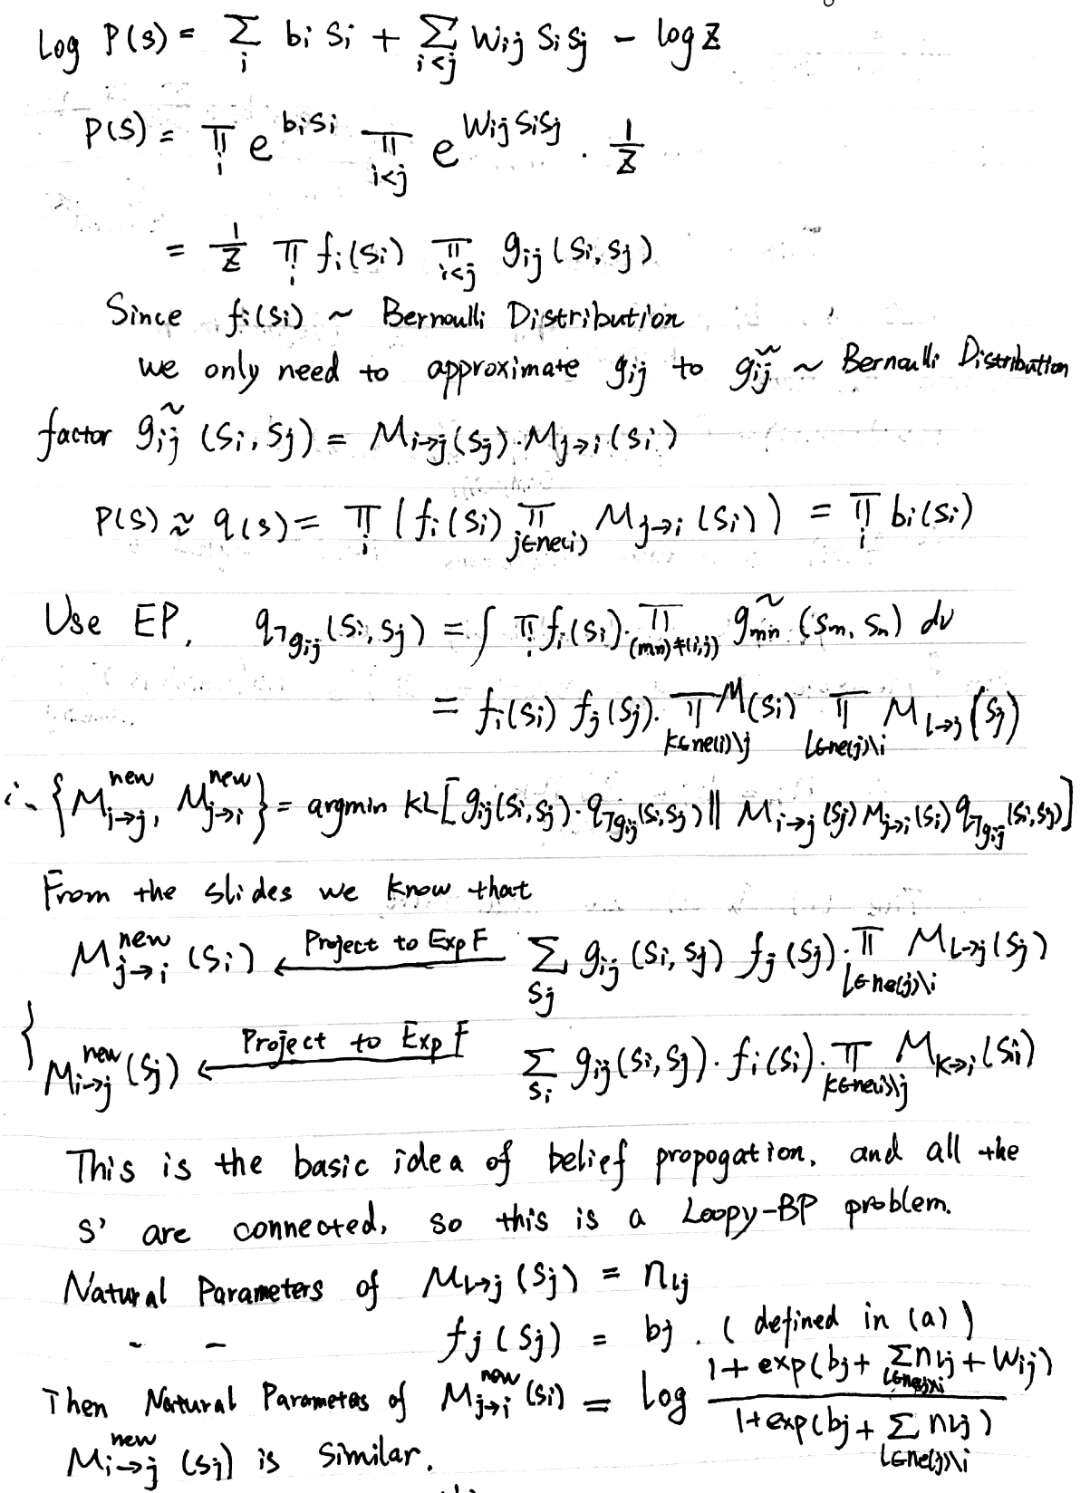 Log P(s) = Σ_i b_i S_i + Σ_{i<j} W_ij S_i S_j − log Z
P(S) = Π_i e^{b_i S_i} Π_{i<j} e^{W_ij S_i S_j} · 1/Z
= 1/Z Π_i f_i(S_i) Π_{i<j} g_ij(S_i, S_j)
Since f_i(S_i) ~ Bernoulli Distribution
we only need to approximate g_ij to g̃_ij ~ Bernoulli Distribution
factor g̃_ij (S_i, S_j) = M_{i→j}(S_j) · M_{j→i}(S_i)
P(S) ≈ q(s) = Π_i (f_i(S_i) Π_{j∈ne(i)} M_{j→i}(S_i)) = Π_i b_i(S_i)
Use EP, q_{¬g_ij}(S_i, S_j) = ∫ Π_i f_i(S_i) · Π_{(mn)≠(i,j)} g̃_mn (S_m, S_n) dν
= f_i(S_i) f_j(S_j) · Π_{k∈ne(i)\j} M(S_i) Π_{l∈ne(j)\i} M_{l→j}(S_j)
{M^new_{i→j}, M^new_{j→i}} = argmin KL[g_ij(S_i, S_j) · q_{¬g_ij}(S_i, S_j) || M_{i→j}(S_j) M_{j→i}(S_i) q_{¬g_ij}(S_i, S_j)]
From the slides we know that
M^new_{j→i}(S_i) ← Project to Exp F Σ_{S_j} g_ij(S_i, S_j) f_j(S_j) · Π_{l∈ne(j)\i} M_{l→j}(S_j)
{ M^new_{i→j}(S_j) ← Project to Exp F Σ_{S_i} g_ij(S_i, S_j) · f_i(S_i) · Π_{k∈ne(i)\j} M_{k→i}(S_i)
This is the basic idea of belief propogation, and all the
S' are connected, so this is a Loopy-BP problem.
Natural Parameters of M_{l→j}(S_j) = n_lj
- - f_j(S_j) = b_j. (defined in (a))
Then Natural Parametes of M^new_{j→i}(S_i) = log (1 + exp(b_j + Σ_{l∈ne(j)\i} n_lj + W_ij)) / (1 + exp(b_j + Σ_{l∈ne(j)\i} n_lj))
M^new_{i→j}(S_j) is similar.